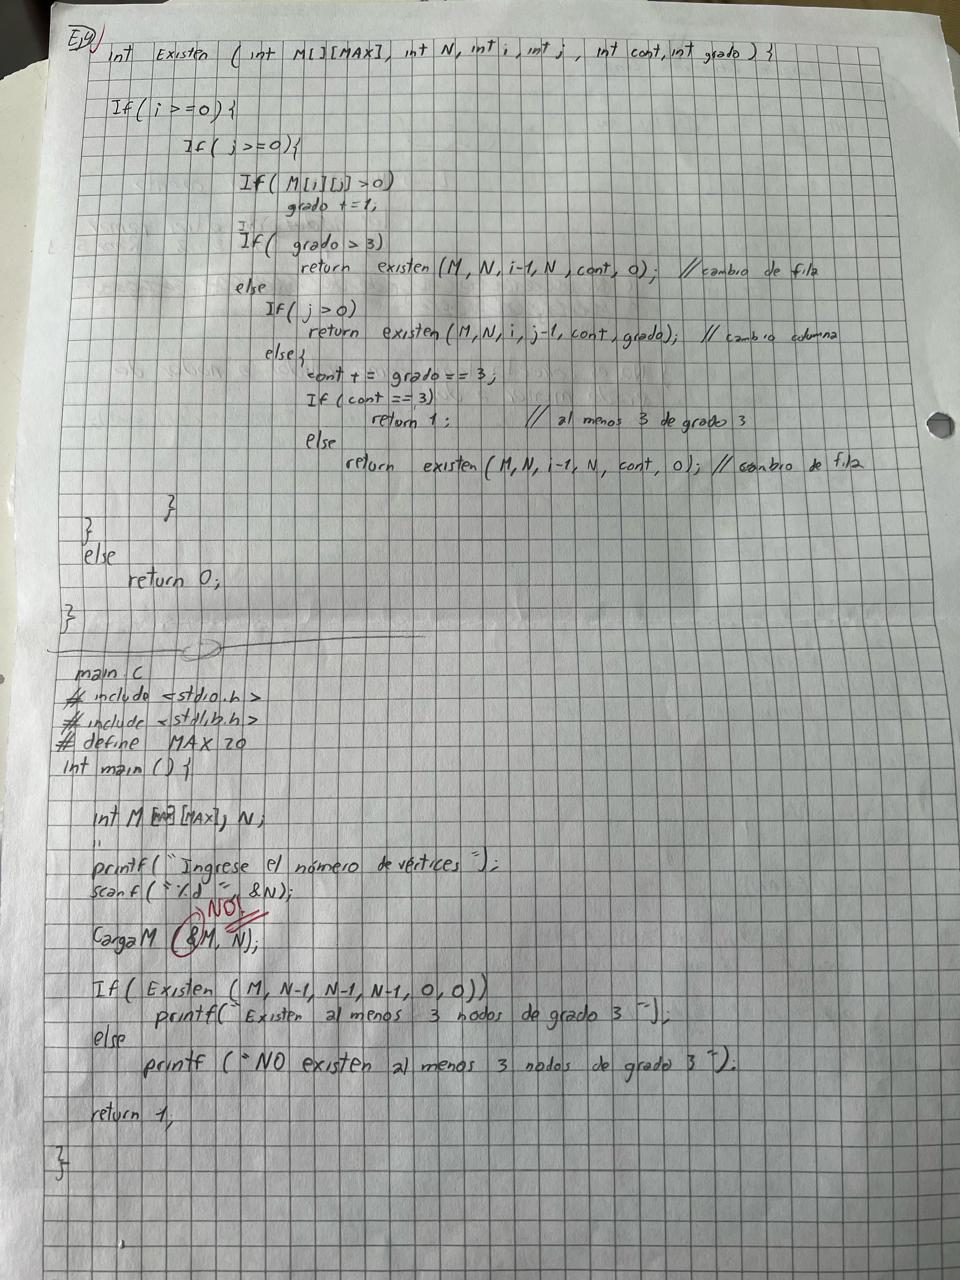 Ej4)
int Existen (int M[][MAX], int N, int i, int j, int cont, int grado) {
If(i >=0){
If( j >=0){
If( M[i][j] >0)
grado +=1;
If( grado > 3)
return existen (M, N, i-1, N, cont, 0); //cambio de fila
else
If( j >0)
return existen (M, N, i, j-1, cont, grado); // cambio columna
else{
cont += grado == 3;
If (cont == 3)
return 1; // al menos 3 de grado 3
else
return existen (M, N, i-1, N, cont, 0); // cambio de fila
}
}
else
return 0;
}
main.c
# include <stdio.h>
# include <stdlib.h>
# define MAX 20
int main () {
int M [MAX], N;
printf("Ingrese el número de vértices ");
scanf ("%d ", &N);
NO!
CargaM (&M, N);
If( Existen (M, N-1, N-1, N-1, 0, 0))
printf("Existen al menos 3 nodos de grado 3 ");
else
printf ("NO existen al menos 3 nodos de grado 3 ");
return 1;
}